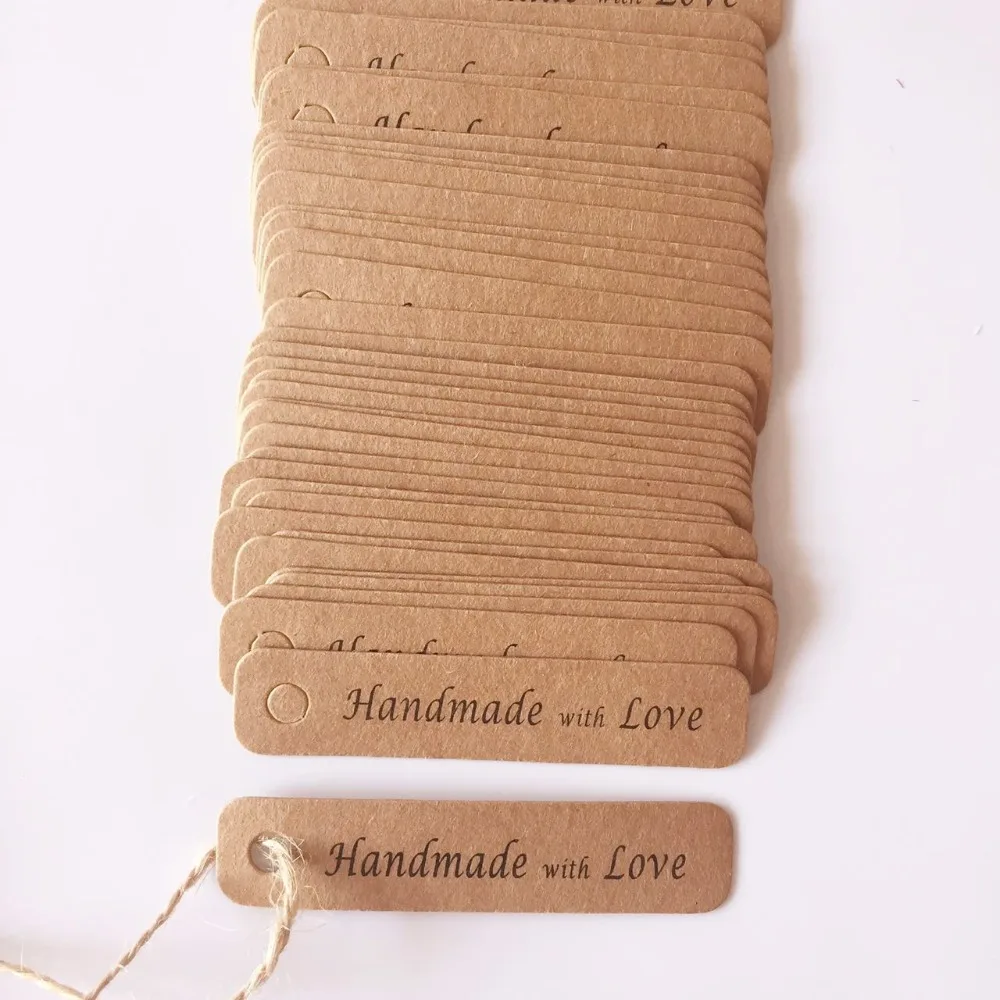 with Love
Handmade with Love
Handmade with Love